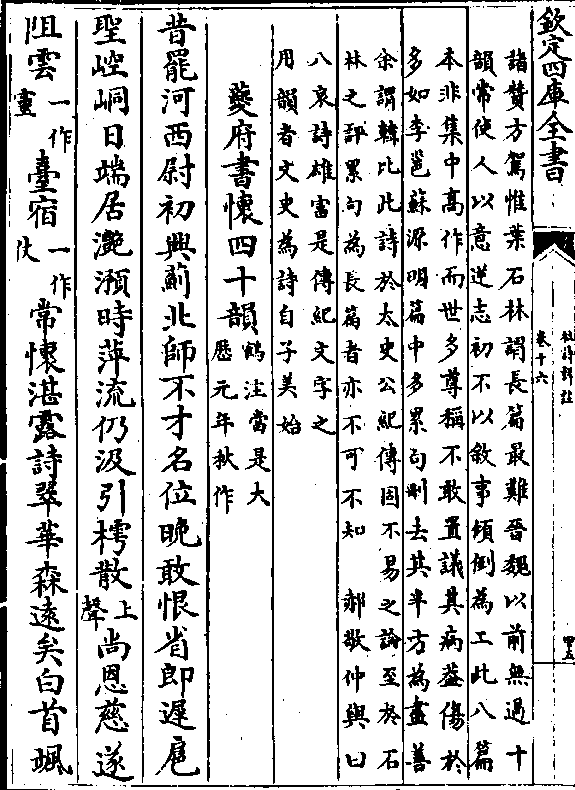 欽定四庫全書
杜詩詳註
卷十六
諸贊方駕惟葉石林謂長篇最難晉魏以前無過十
韻常使人以意逆志初不以敘事傾倒為工此八篇
本非集中高作而世多尊稱不敢置議其病葢傷於
多如李邕蘇源明篇中多累句刪去其半方為盡善
余謂韓比此詩於太史公紀傳固不易之論至於石
林之評累句為長篇者亦不可不知 郝敬仲輿曰
八哀詩雄富是傳紀文字之
用韻者文史為詩自子美始
夔府書懷四十韻鶴注當是大厯元年秋作
昔罷河西尉初興薊北師不才名位晚敢恨省郎遲扈
聖崆峒日端居灧澦時萍流仍汲引樗散上聲尚恩慈遂
阻雲一作畫臺宿一作仗常懷湛露詩翠華森遠矣白首颯